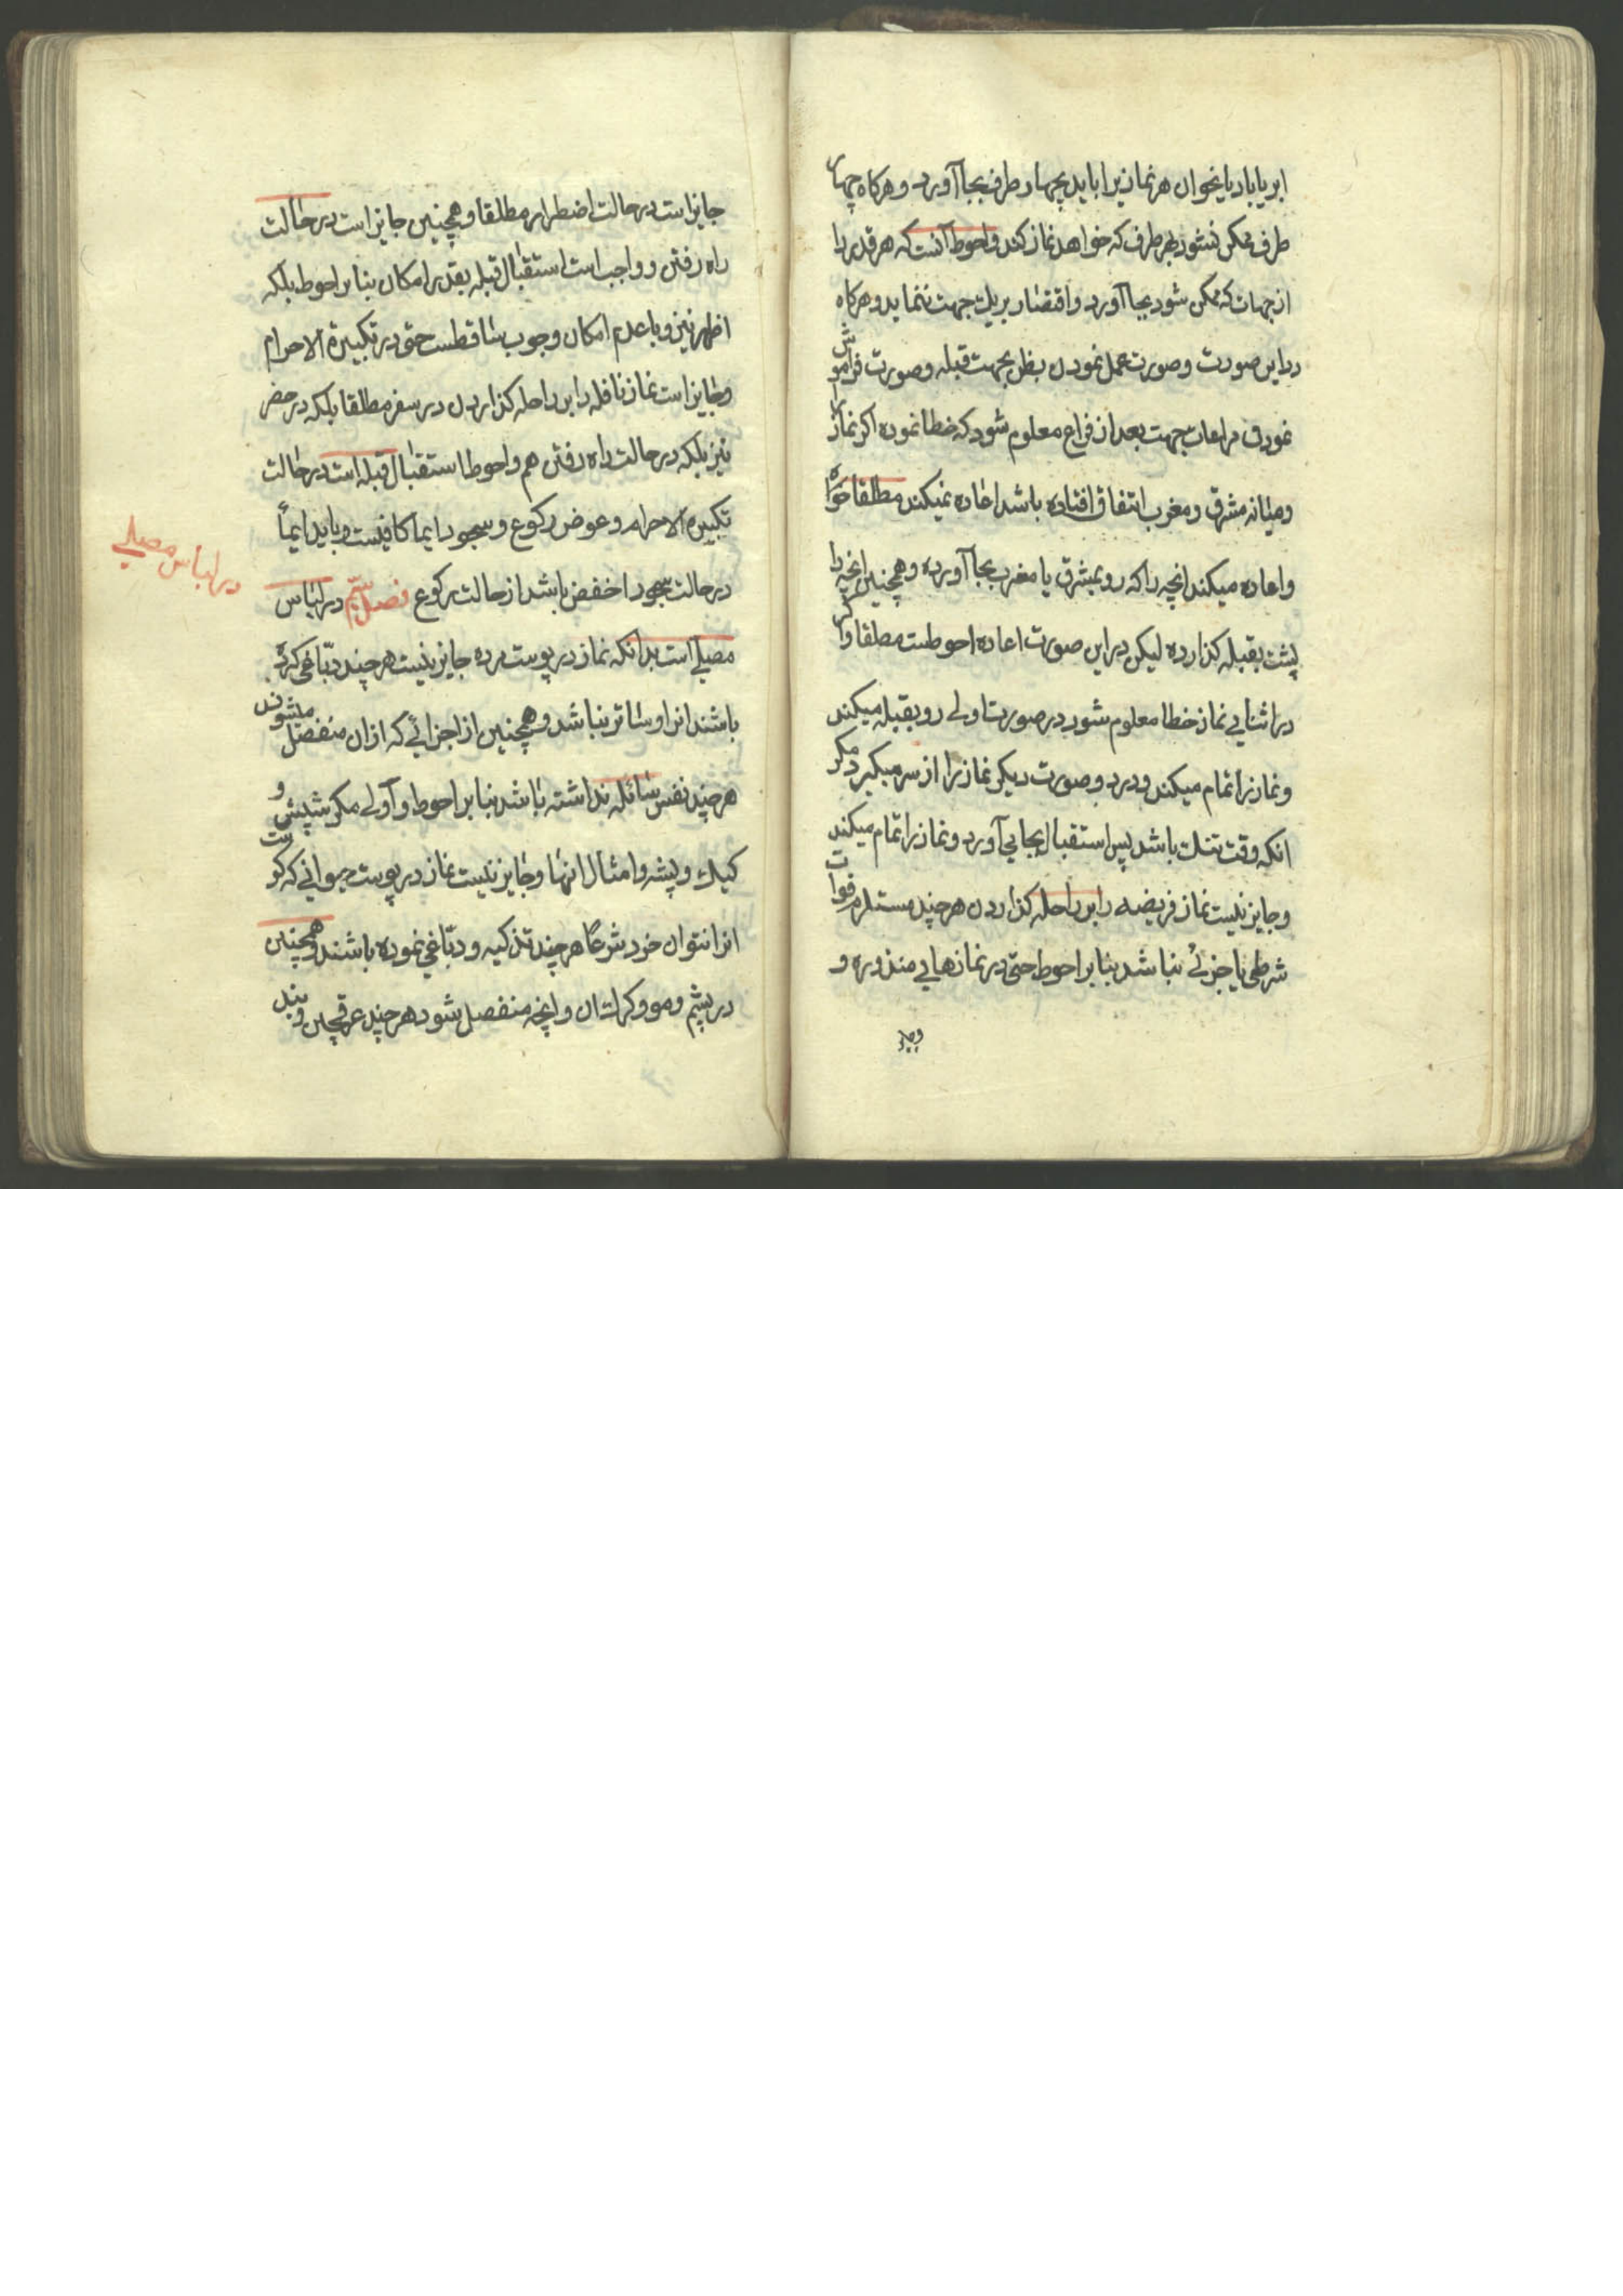 ابر یا باد یا نحو ان هر نمازیرا باید بچهار طرف بجا آورد و هرکاه چهار
طرف ممکن نشود بهر طرف که خواهد نماز کند واحوط آنست که هر قدر را
از جهات که ممکن شود بجا آورد و اقتصار بر یک جهت ننماید و هرکاه
در این صورت و صورت عمل نمودن بظن بجهت قبله و صورت فراموش
نمودن مراعات جهت بعد از فراغ معلوم شود که خطا نموده اکر نماز را
ومیانه مشرق و مغرب اتفاق افتاده باشد اعاده نمیکند مطلقا خواه
واعاده میکند انچه را که رو بمشرق یا مغرب بجا آورده و همچنین انچه را
پشت بقبله کذارده لیکن در این صورت اعاده احوطست مطلقا و اکر
در اثنایی نماز خطا معلوم شود در صورت اولی رو بقبله میکند
ونماز را تمام میکند و در دو صورت دیکر نماز را از سر میکیرد مکر
انکه وقت تنک باشد پس استقبال بجا یی آورد و نماز را تمام میکند
وجایز نیست نماز فریضه را بر راحله کذاردن هر چند مستلزم فوات
شرطی یا جزئی نباشد بنابر احوط حتی در نمازهایی منذوره و
جایز است در حالت اضطرار مطلقا و همچنین جایز است در حالت
راه رفتن و واجب است استقبال قبله بقدر امکان بنابر احوط بلکه
اظهر نیز و با عدم امکان وجوب ساقطست حتی در تکبیرة الاحرام
وجایز است نماز نافله را بر راحله کذاردن در سفر مطلقا بلکه در حضر
نیز بلکه در حالت راه رفتن هم و احوط استقبال قبله است در حالت
تکبیرة الاحرام و عوض رکوع و سجود ایما کافیست و باید ایماً
در حالت سجود اخفض باشد از حالت رکوع فصل سیّم در لباس
در لباس مصلی
مصلی است بدانکه نماز در پوست مرده جایز نیست هر چند دبّاغی کرده
باشند انرا و ساتر نباشد و همچنین از اجزائی که از ان منفصل میشوند
هر چند نفس سائله نداشته باشد بنابر احوط و اولی مکر شپش و
کیک و پشه و امثال انها و جایز نیست نماز در پوست حیوانی که کوشت
انرا نتوان خورد شرعًا هر چند تذکیه و دبّاغی نموده باشند و همچنین
در پشم و مو و کرک ان و انچه منفصل شود هر چند عرقچین و بند